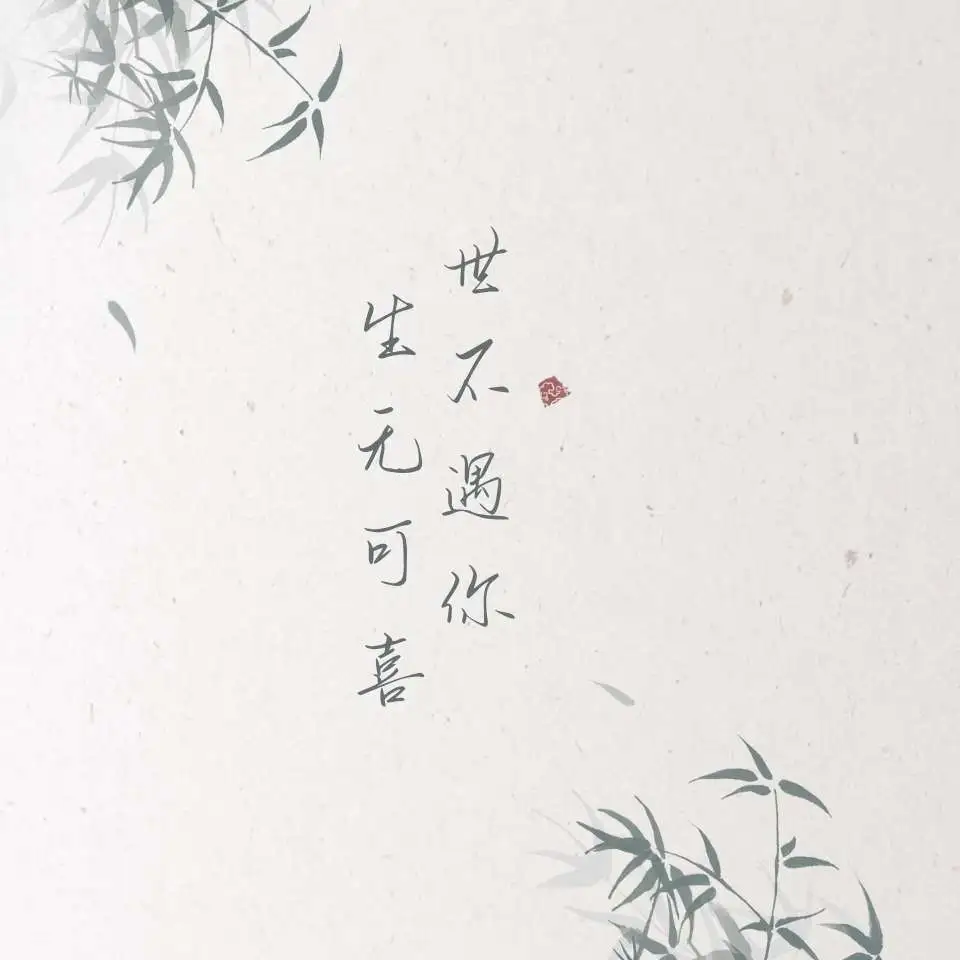 世不遇你
生无可喜